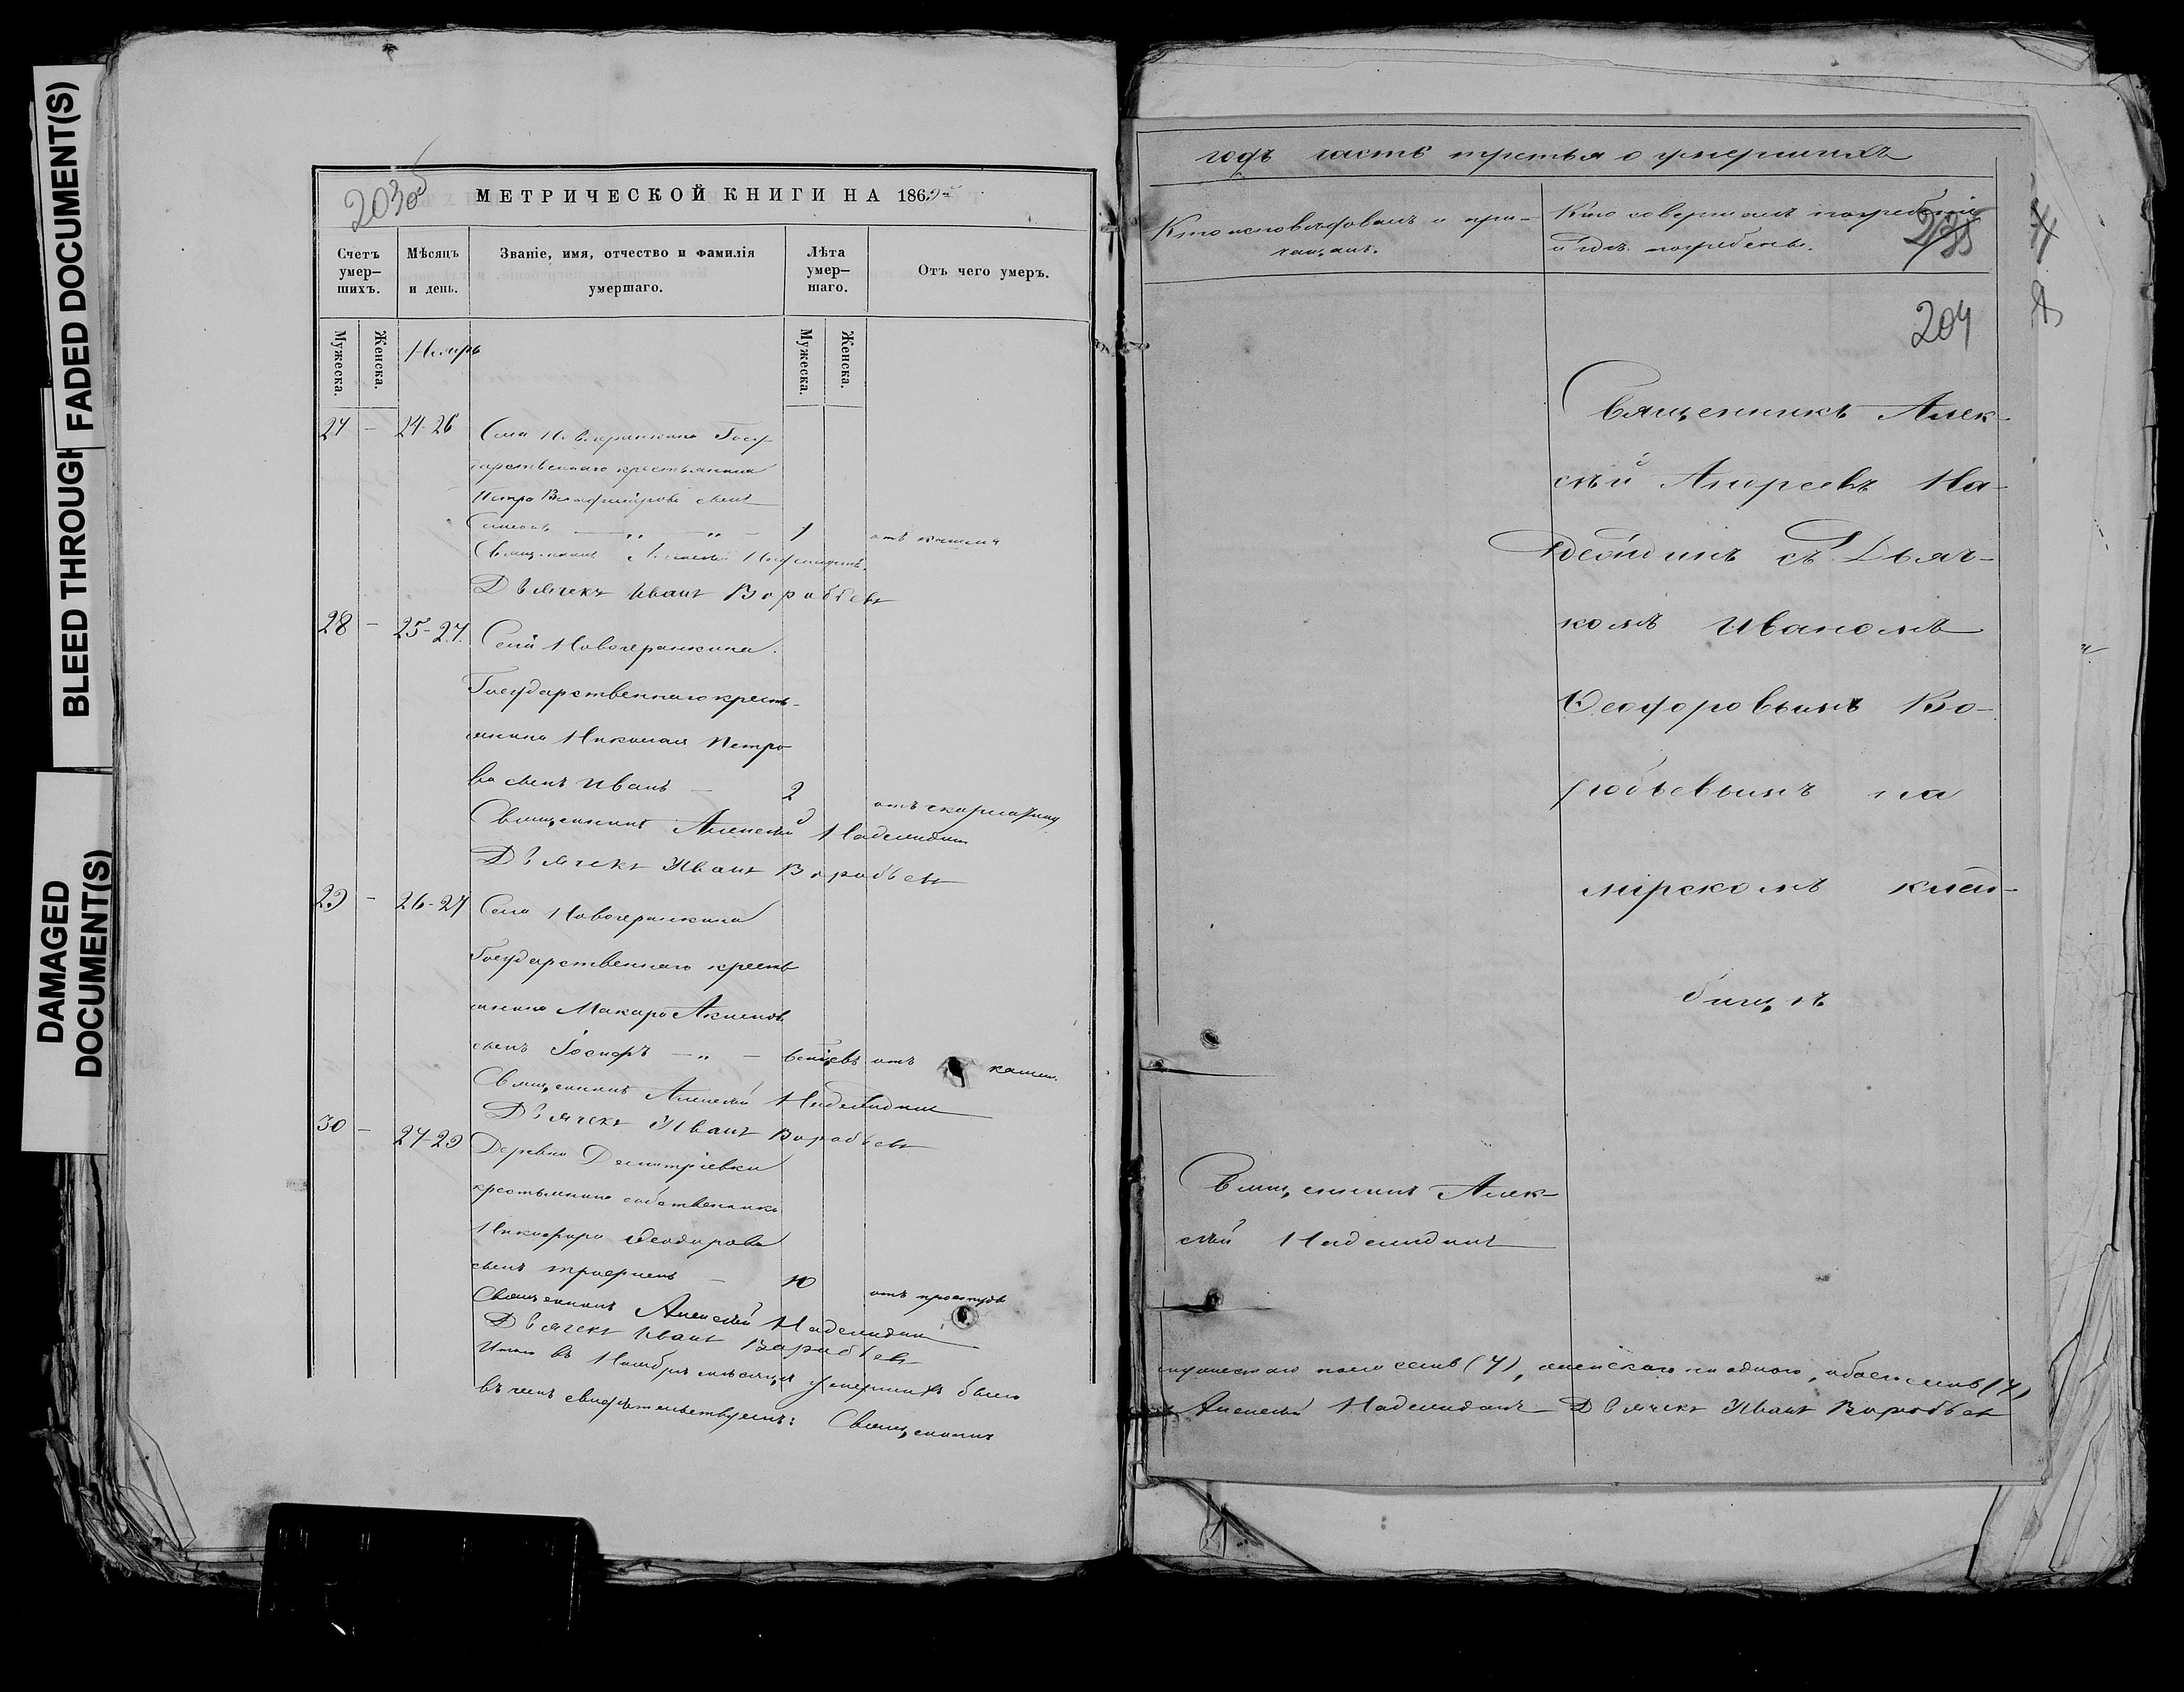 FADED DOCUMENT(S)
BLEED THROUGH
DAMAGED
DOCUMENT(S)
203об
МЕТРИЧЕСКОЙ КНИГИ НА 1869й
Счетъ умер-шихъ.
Мѣсяцъ и день.
Званіе, имя, отчество и фамилія умершаго.
Лѣта умер-шаго.
Отъ чего умеръ.
Мужеска.
Женска.
Ноябрь
Мужеска.
Женска.
27 - 24-26 Села Новочеранкина Госу-
дарственнаго крестьянина
Петра сынъ
1 отъ кашля
Священникъ Алексѣй Надеждинъ
Дьячекъ Иванъ Воробьевъ
28 - 25-27. Села Новочеранкина.
Государственнаго кресть-
янина Николая Петро
ва сынъ Иванъ - 2
Священникъ Алексѣй Надеждинъ
Дьячекъ Иванъ Воробьевъ
29 - 26-27 Села Новочеранкина
Государственнаго кресть
янина Макара Акимова
сынъ Іосифъ - " - отъ кашля
Священникъ Алексѣй Надеждинъ
Дьячекъ Иванъ Воробьевъ
30 - 27-29 Деревни Демитріевки
крестьянина собственника
Никифора Ѳеодорова
сынъ - 10 отъ простуды
Священникъ Алексѣй Надеждинъ
Дьячекъ Иванъ Воробьевъ
Итого въ Ноябрѣ мѣсяцѣ умершихъ было
въ чемъ свидѣтельствуемъ: Священникъ
годъ часть третья о умершихъ
Кто исповѣдовалъ и при-
чащалъ.
Кто совершалъ погребеніе
и гдѣ погребены.
204
Священникъ Алек-
сѣй Андреевъ На-
деждинъ съ Дьяч-
комъ Иваномъ
Ѳеодоровымъ Во-
робьевымъ на
мірскомъ клад-
бищѣ
Священникъ Алек-
сѣй Надеждинъ
мужескаго пола семь (7), женскаго ни одного, обоего семь (7)
Алексѣй Надеждинъ Дьячекъ Иванъ Воробьевъ